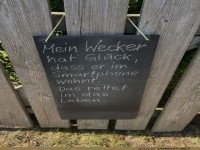 Mein Wecker
hat Glück,
dass er im
Smartphone
wohnt.
Das rettet
im das
Leben.